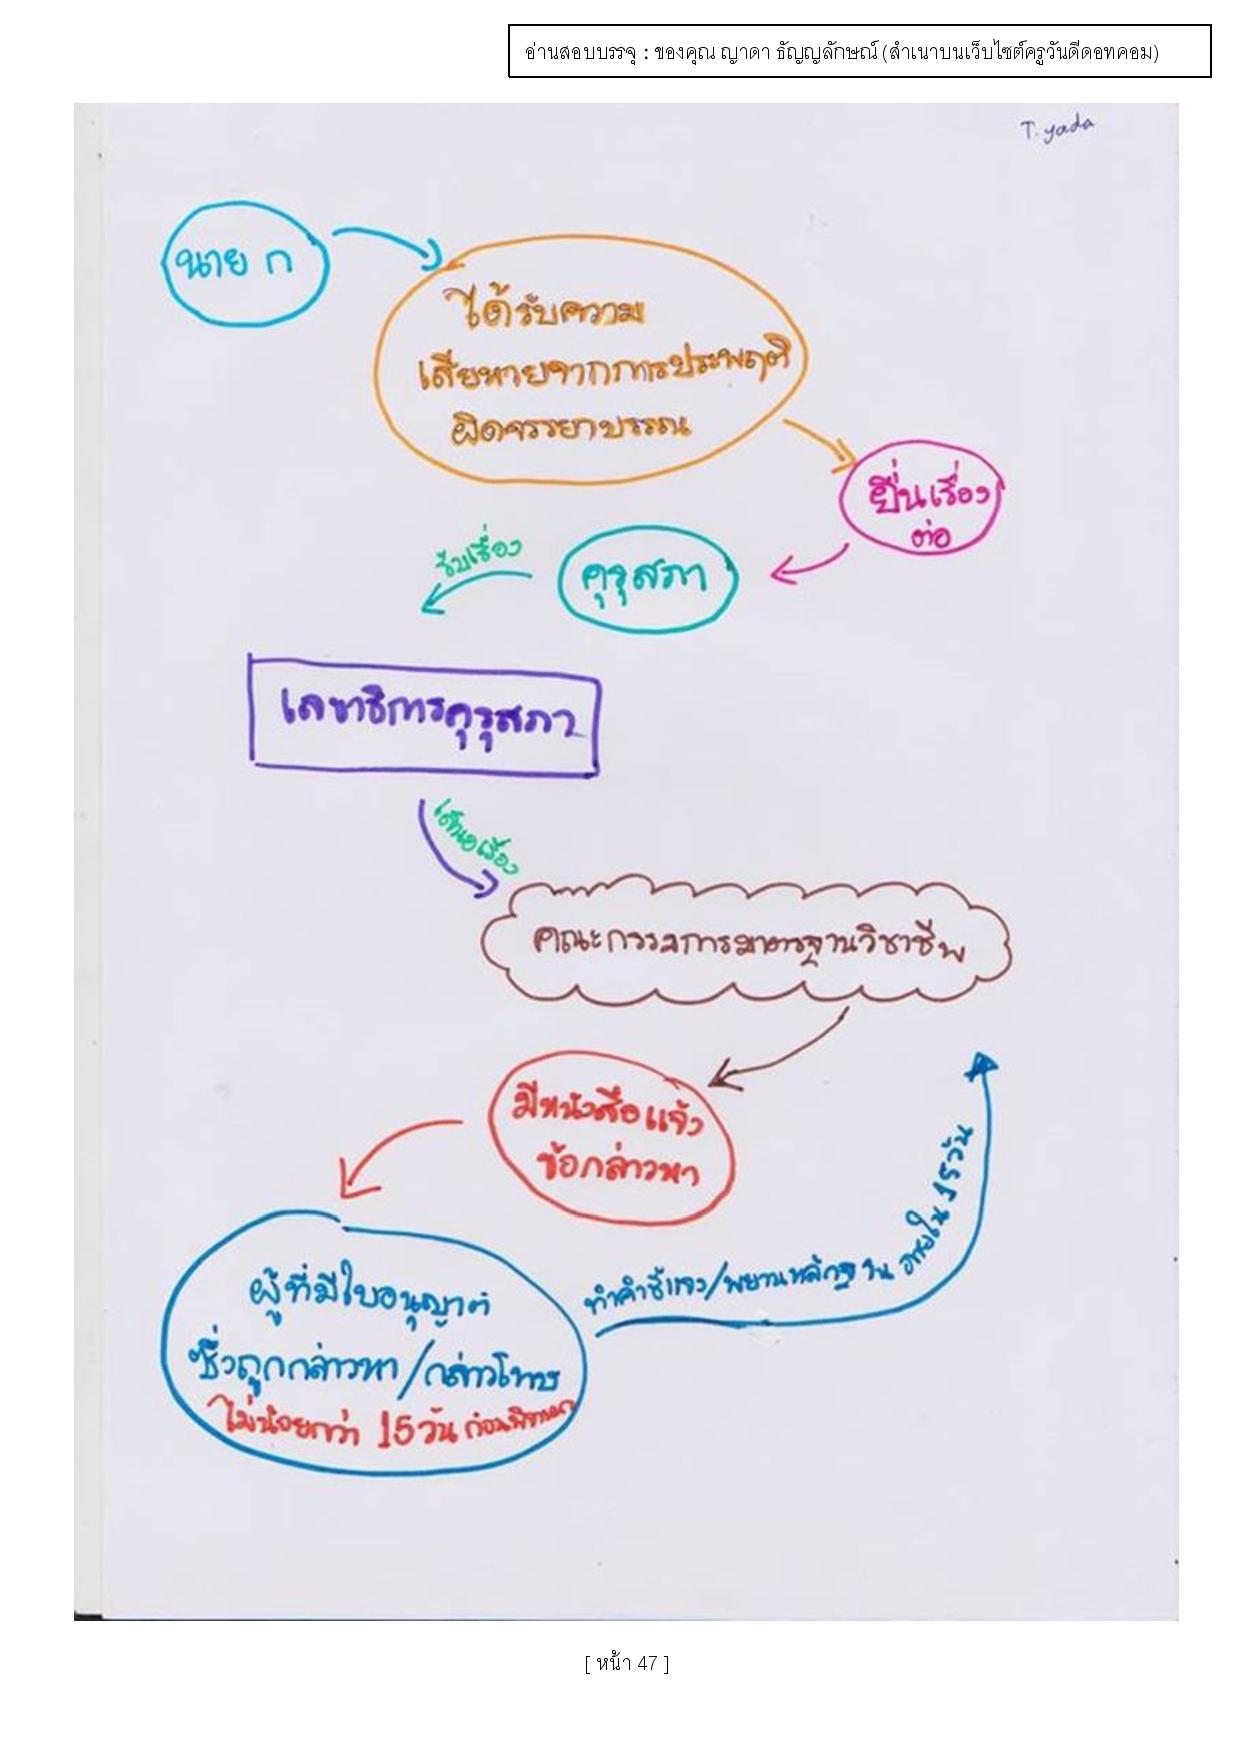 อ่านสอบบรรจุ : ของคุณ ญาดา ธัญญลักษณ์ (สำเนาบนเว็บไซต์ครูวันดีดอทคอม)
T. yada
นาย ก
ได้รับความ
เสียหายจากการประพฤติ
ผิดจรรยาบรรณ
ยื่นเรื่อง
ต่อ
คุรุสภา
รับเรื่อง
เลขาธิการคุรุสภา
เสนอเรื่อง
คณะกรรมการมาตรฐานวิชาชีพ
มีหนังสือแจ้ง
ข้อกล่าวหา
ผู้ที่มีใบอนุญาต
ซึ่งถูกกล่าวหา/กล่าวโทษ
ไม่น้อยกว่า 15 วัน ก่อนพิจารณา
ทำคำชี้แจง/พยานหลักฐาน ภายใน 15 วัน
[ หน้า 47 ]